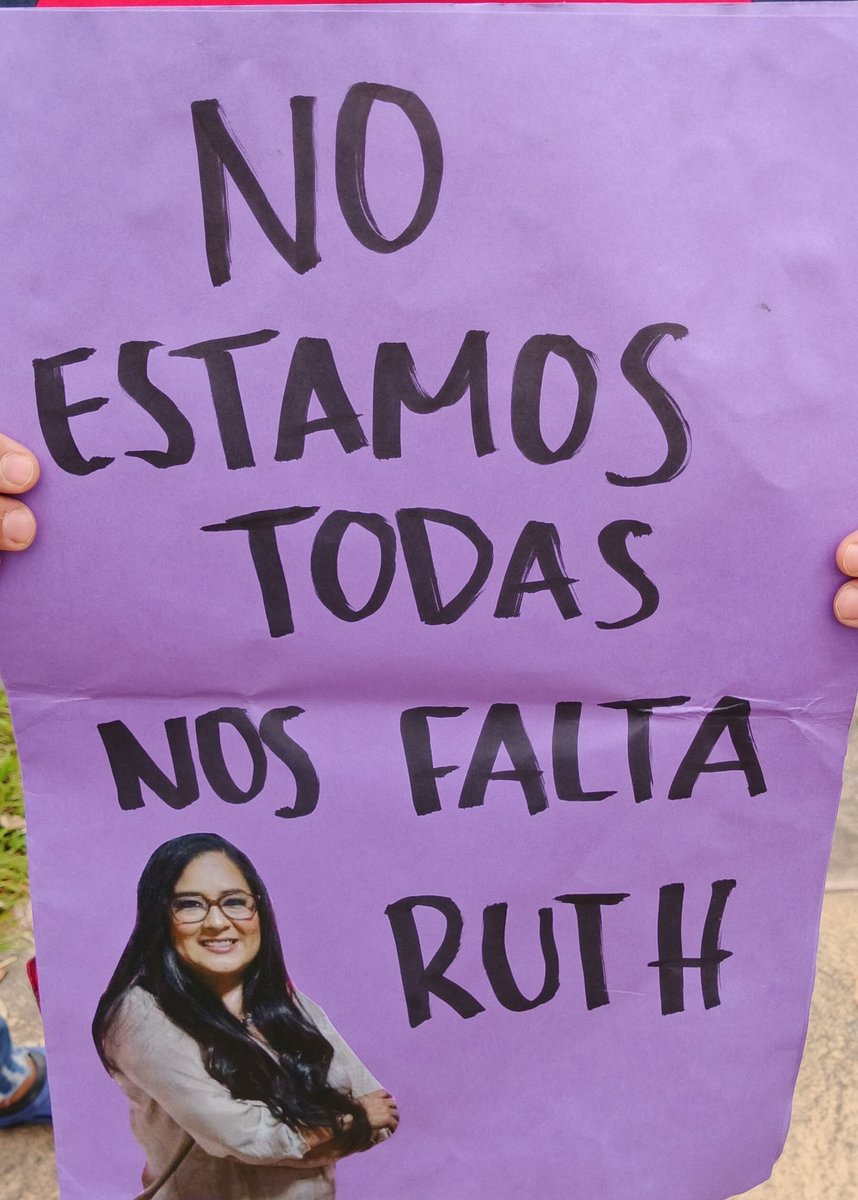 NO
ESTAMOS
TODAS
NOS FALTA
RUTH